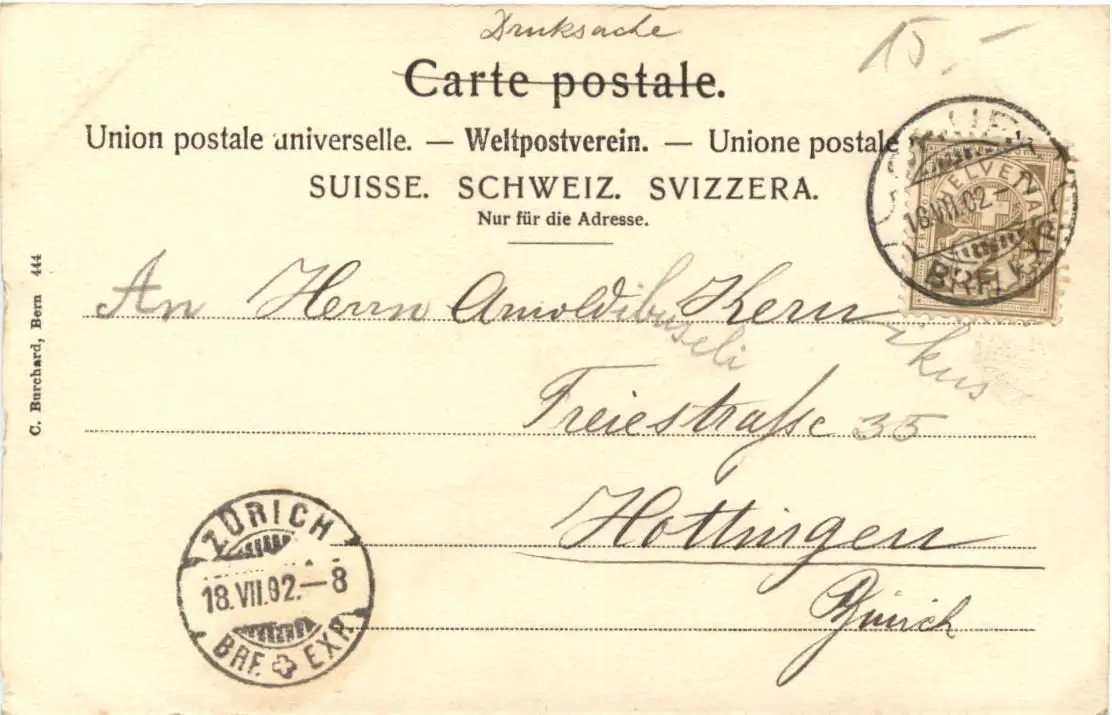 Drucksache
15.-
Carte postale.
Union postale universelle. — Weltpostverein. — Unione postale
SUISSE. SCHWEIZ. SVIZZERA.
Nur für die Adresse.
HELVETIA
18.VII.02.-
BRF. EXP.
An Herrn Arnold Kern
Freiestrasse 35
Hottingen
Zürich
C. Burchard, Bern 444
ZÜRICH
18.VII.02.-8
BRF. EXP.